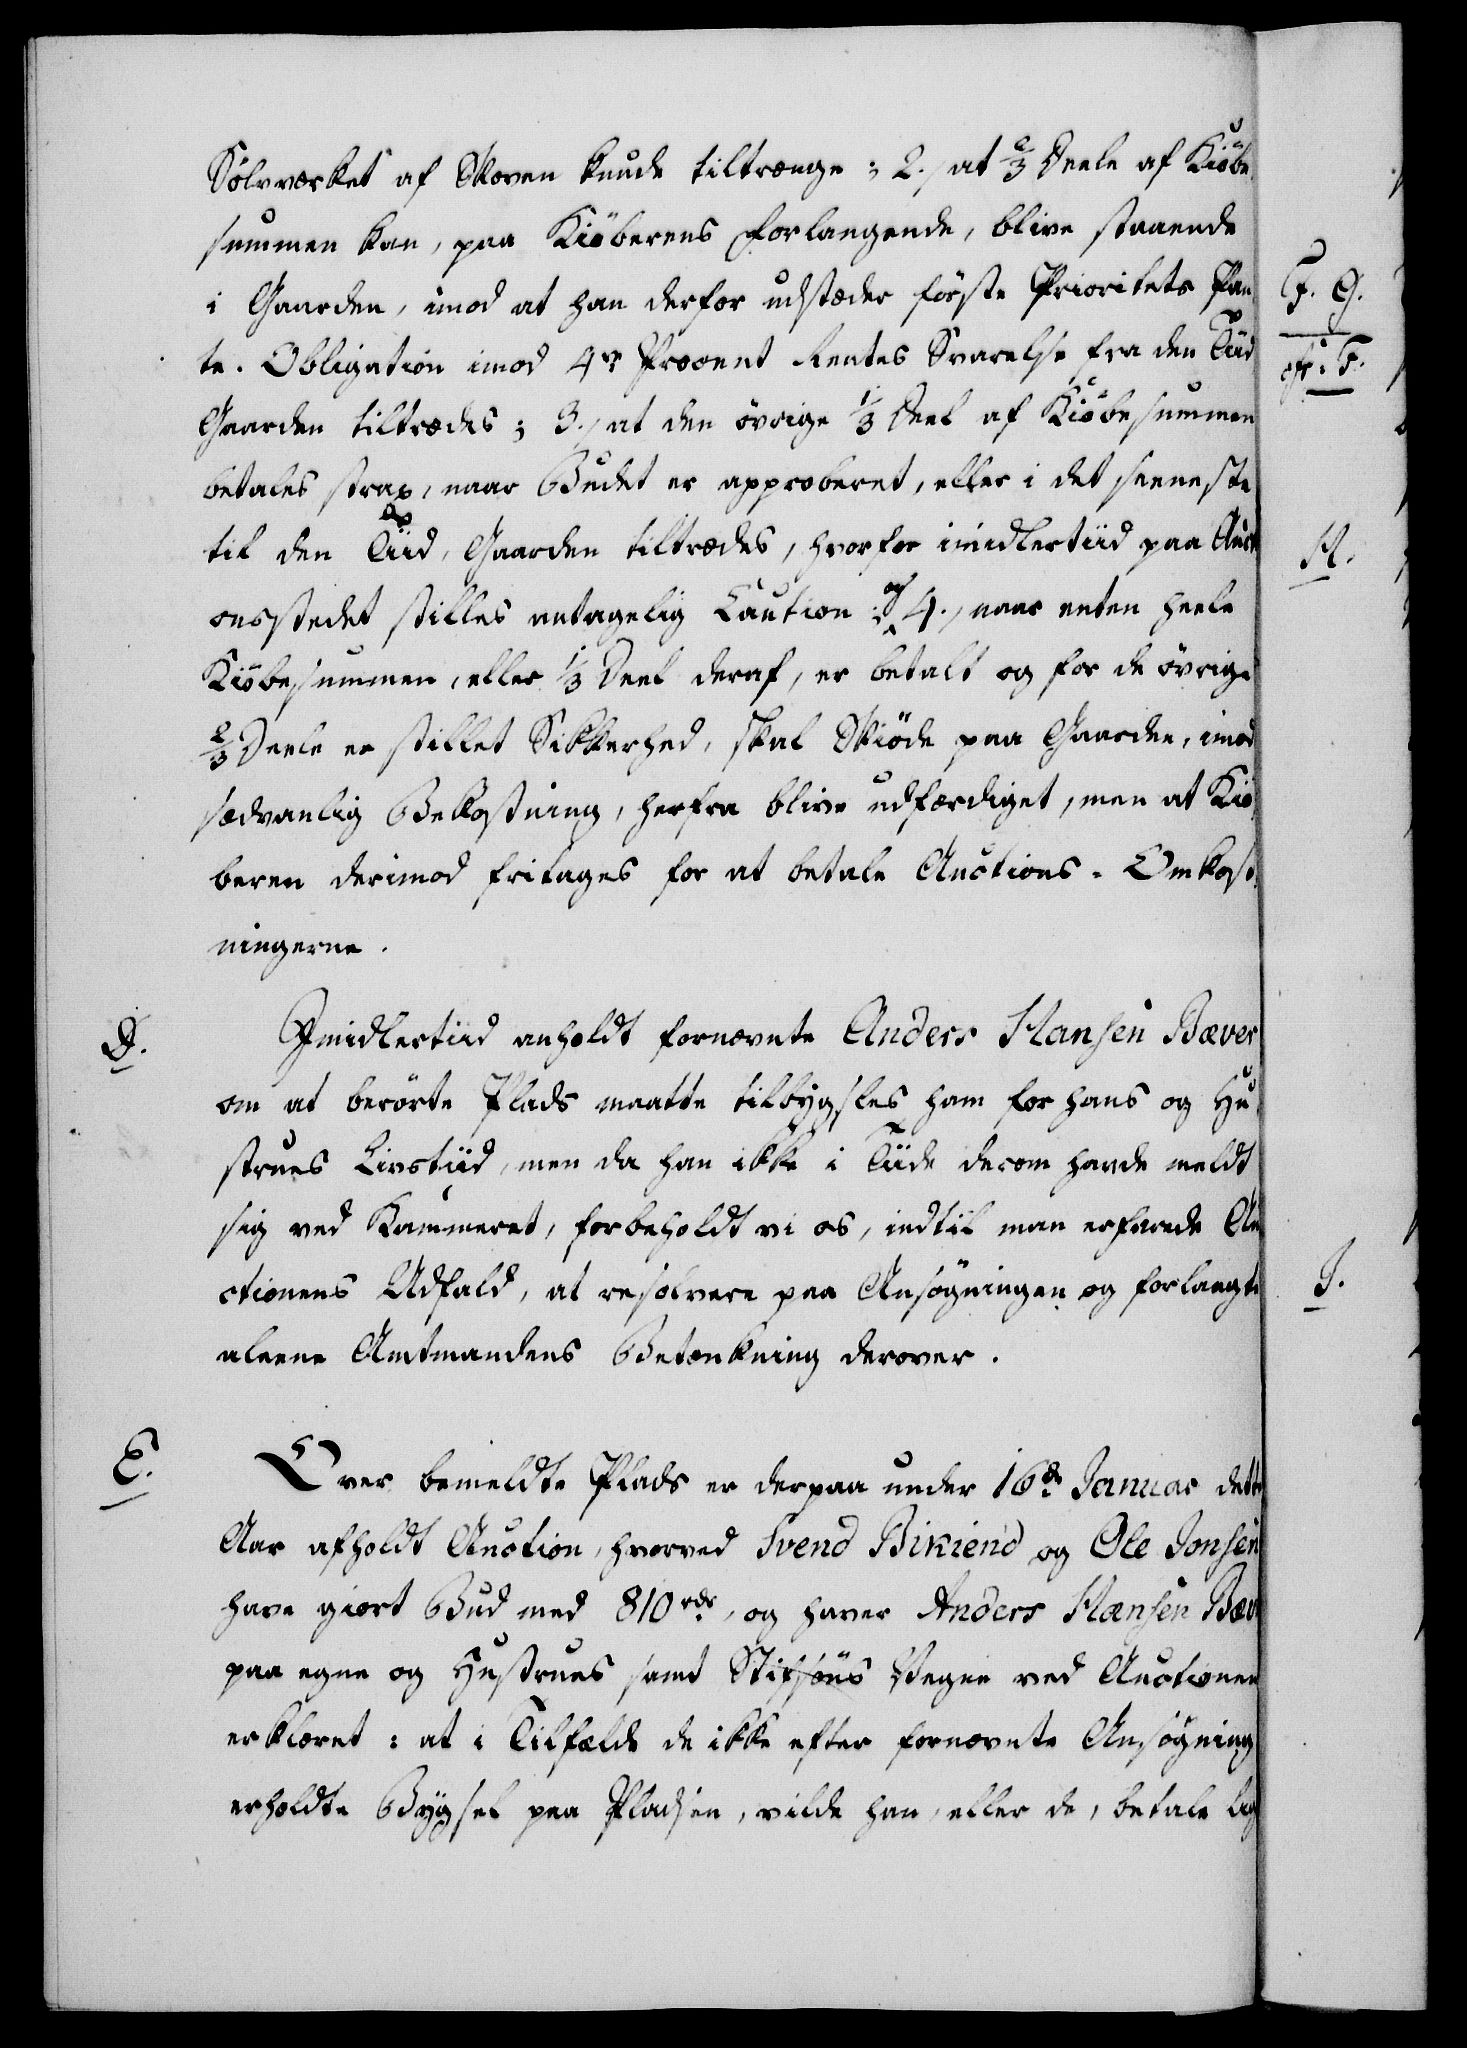 Sølvværket af Skoven kunde tiltrænge; 2./ at 2/3 Deele af Kiöbe
summen kan, paa Kiöberens Forlangende, blive staaende
i Gaarden, imod at han derfor udstæder förste Prioritets Pan
te-Obligation imod 4re Procent Rentes Svarelse fra den Tiid
Gaarden tiltrædes; 3./ at den övrige 1/3 Deel af Kiöbesummen
betales strax, naar Budet er approberet, eller i det seeneste
til den Tiid, Gaarden tiltrædes, hvorfor imidlertiid paa Aucti
onsstedet stilles antagelig Caution; og 4./ naar enten heele
Kiöbesummen, eller 1/3 Deel deraf, er betalt og for de övrige
2/3 Deele er stillet Sikkerhed, skal Skiöde paa Gaarden, imod
sædvanlig Bekostning, herfra blive udfærdiget, men at Kiö
beren derimod fritages for at betale Auctions-Omkost
ningerne.
D.
Imidlertiid anholdt fornævnte Anders Hansen Bæver
om at berörte Plads maatte tilbygsles ham for hans og Hu
strues Livstiid, men da han ikke i Tiide derom havde meldt
sig ved Kammeret, forbeholdt vi os, indtil man erfarede Au
ctionens Udfald, at resolvere paa Ansögningen og forlangte
aleene Amtmandens Betænkning derover.
E.
Over bemeldte Plads er derpaa under 16de Januar dette
Aar afholdt Auction, hvorved Svend Bikiend og Ole Jonsen
have giort Bud med 810 rdr, og haver Anders Hansen Bæv
paa egne og Hustrues samt Stifsöns Vegne ved Auctionen
erklæret: at i Tilfælde de ikke efter fornævnte Ansögning
erholdte Bygsel paa Pladsen, vilde han, eller de, betale lig
F. G.
cfr. F.
H.
I.